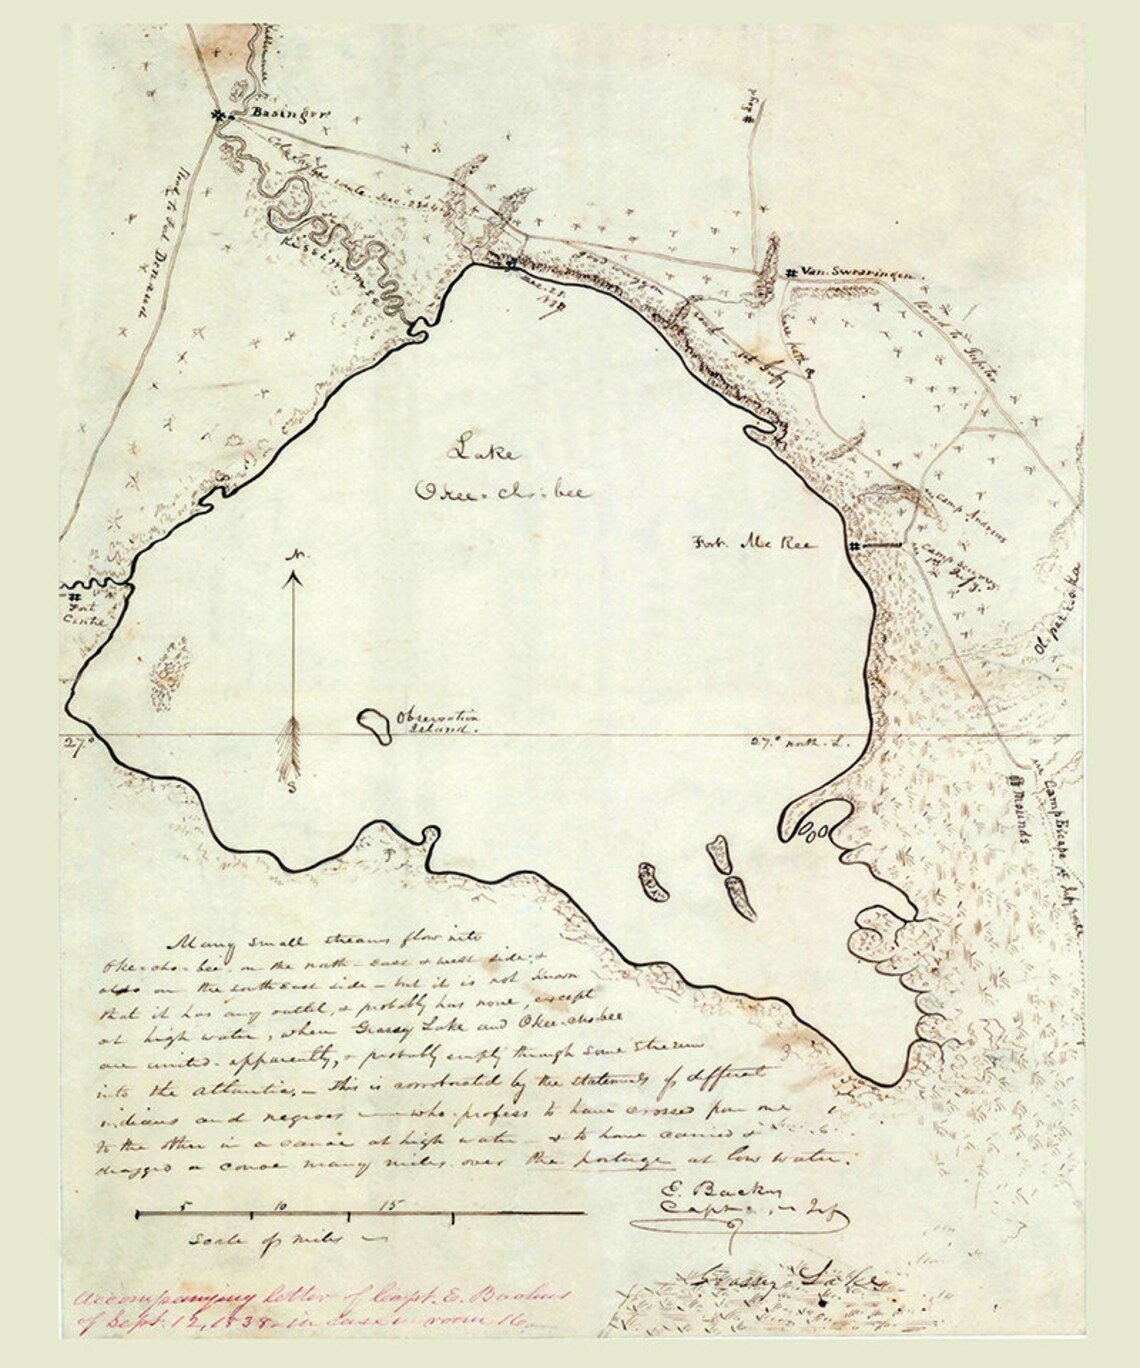 Kissimmee
Basinger
Loyd
Col. Taylors route Dec. 25th
Road to Fort Denaud
Kissimmee
Dec. 25
1837
good waggon
road
1st Infy
Van. Swearingen.
Road to Jupiter
Lake
Okee-cho-bee
Fort. Mc Ree
Camp Andrews
Camp
1st Infy.
Fort
Centre
N.
Observation
Island.
27°
27.° north. L.
S
Mounds
Camp
Many small streams flow into
Oke-cho-bee, on the north-east & west side, &
also on the south East side - but it is not known
that it has any outlet, & probably has none, except
at high water, when Grassey Lake and Okee-cho-bee
are united. apparently, & probably empty through some streams
into the Atlantic, - This is corroborated by the statements of different
indians and negroes - who profess to have crossed from one
to the other in a canoe at high water - & to have carried &
dragged a canoe many miles over the portage at low water.
E. Backus
Capt. 1st Inf
5 10 15
Scale of miles
Grassy Lake
Accompanying letter of Capt. E. Backus
of Sept. 12, 1838 - in case in room 16.